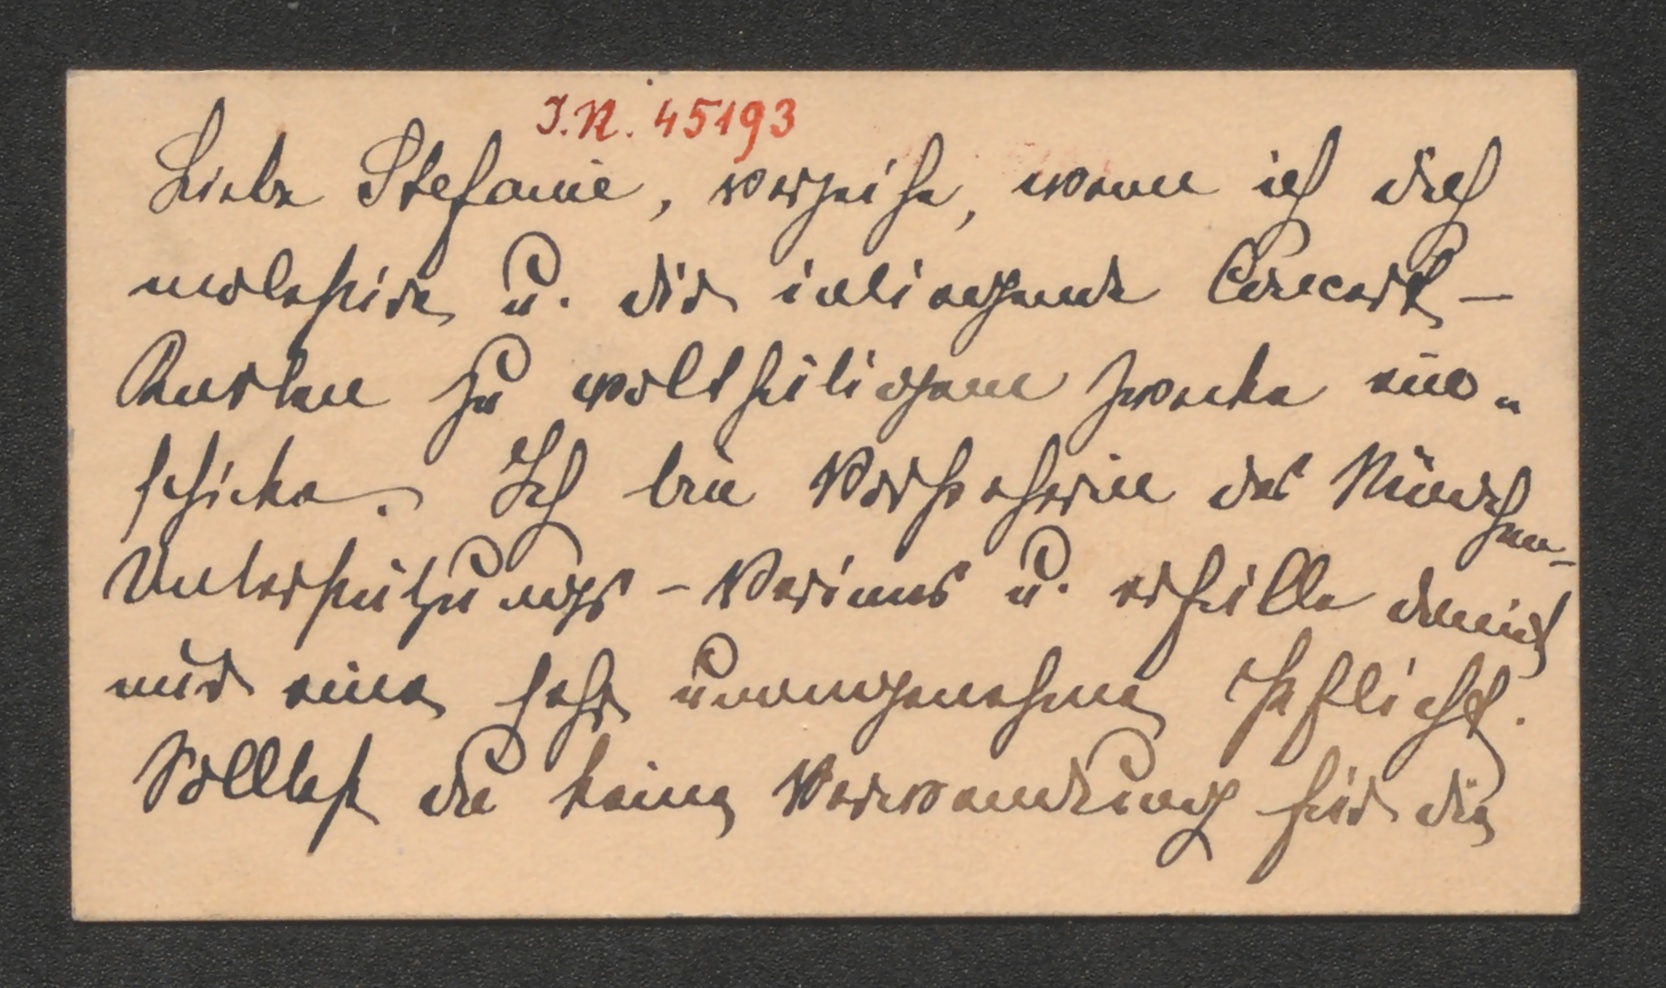 I.N. 45193
Liebe Stefanie, verzeihe, wenn ich dich
molestire u. dir inliegende Concert-
Karten zu wolthätigem Zwecke ein-
schicke. Ich bin Vorsteherin des München-
Unterstützungs-Vereines u. erfülle damit
nur eine sehr unangenehme Pflicht.
Solltest du keine Verwendung für die